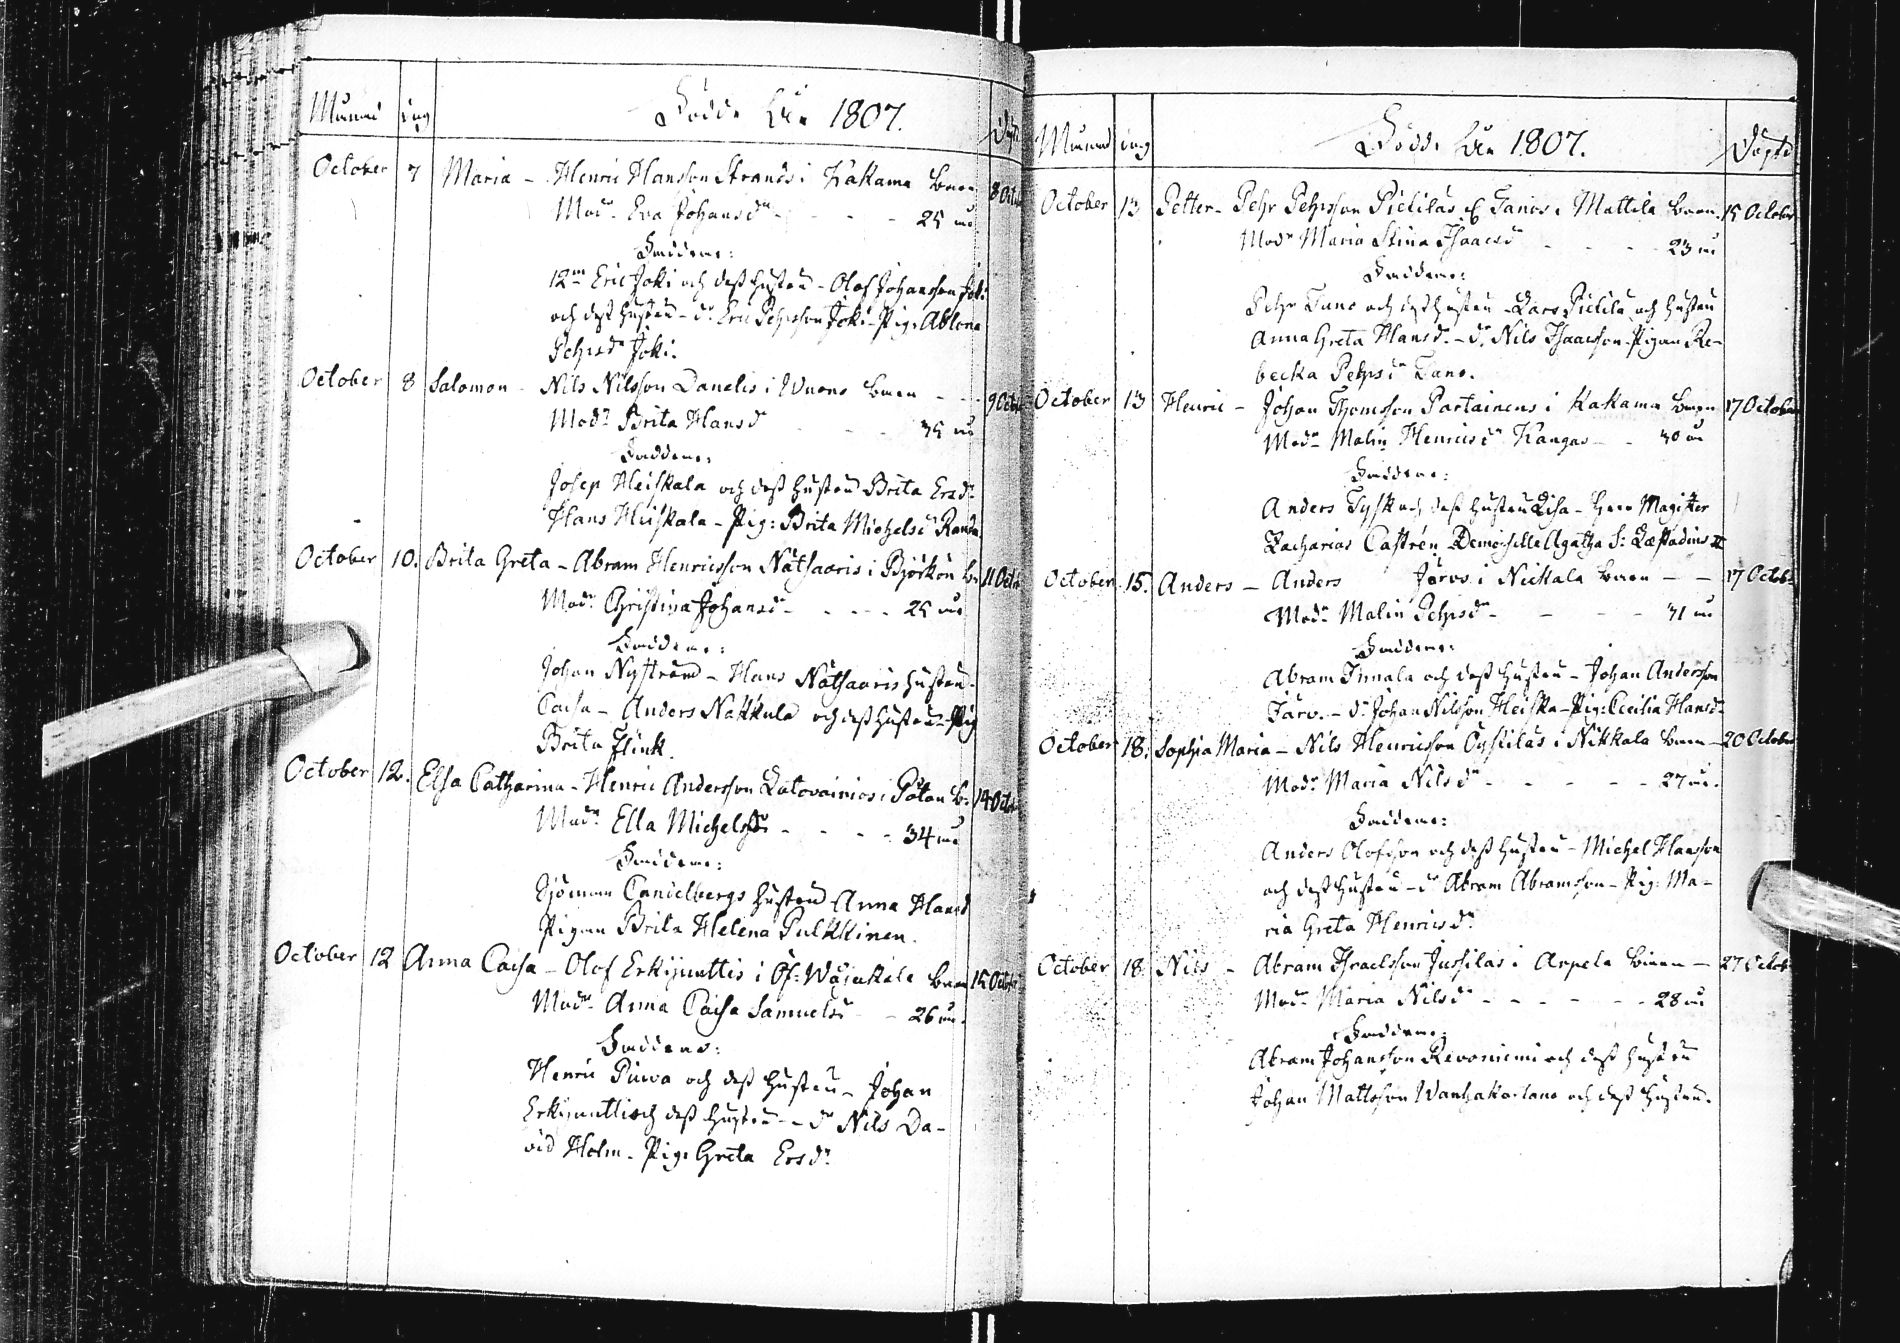 Månad dag Födde Åhr 1807. Döpt
October 7 Maria - Henric Hansson Strands i Kakama barn 8 Octob
Modr Eva Johansdr - - - 25 år
Faddrar:
12m Eric Joki och dess hustru - Olof Johansson Joki
och dess hustru - dr Eric Pehrsson Joki - Pig: Ablona
Pehrsdr Joki.
October 8 Salomon - Nils Nilsson Danelis i Wuono barn - - 9 Octob
Modr Brita Hansdr - - - 35 år
Faddrar:
Josep Heiskala och dess hustru Brita Ersdr
Hans Heiskala - Pig: Brita Michelsdr
October 10. Brita Greta - Abram Henricsson Nätsaaris i Björkön b: 11 Octob
Modr Christina Johansdr - - - - 25 år
Faddrar:
Johan Nyström - Hans Nätsaaris hustru
Caisa - Anders Nakkula och dess hustru - Pig
Brita Flink
October 12. Elsa Catharina - Henric Andersson Latovainios i b: 14 Octob
Modr Ella Michelsdr - - - - 34 år
Faddrar:
Sjöman hustru Anna Hansd
Pigan Brita Helena Pulkkinen.
October 12 Anna Caisa - Olof Erkijunttis i Öf: Wojakala barn 15 Octob
Modr Anna Caisa Samuelsd - - 26 år.
Faddrar:
Henric och dess hustru - Johan
Erkijuntti och dess hustru - - dr Nils Da-
vid Holm - Pig: Greta Ersdr
Månad dag Födde Åhr 1807. Döpte
October 13 Petter - Pehr Pehrsson Piekilas i Mattila barn. 15 October
Modr Maria Stina Isaacsdr - - - - 23 år
Faddrar:
Pehr Tano och dess hustru - Lars Piekila och hustru
Anna Greta Hansd. - dr Nils Isaacsson - Pigan Re-
becka Pehrsdr Tano.
October 13 Henric - Johan Thomsson Partainens i Kakama barn 17 October
Modr Malin Henricsdr Kangas - - 30 år
Faddrar:
Anders Tysk och dess hustru Lisa - Herr Magister
Zacharias Castrén Demoiselle Agatha S: Læstadius
October 15. Anders - Anders Järvs i Nickala barn - - 17 Octob
Modr Malin Pehrsdr - - - - 31 år
Faddrar:
Abram Innala och dess hustru - Johan Andersson
Järv. - dr Johan Nilsson Heiska - Pig: Cecilia Hansdr
October 18. Sophia Maria - Nils Henricsson i Nikkala barn - 20 October
Modr Maria Nilsdr - - - - - 27 år.
Faddrar:
Anders Olofsson och dess hustru - Michel Hansson
och dess hustru - dr Abram Abramsson - Pig: Ma-
ria Greta Henricsdr
October 18. Nils - Abram Israelsson Jussilas i Arpela barn - 27 Octob
Modr Maria Nilsdr - - - - - - 28 år
Faddrar:
Abram Johansson Revoniemi och dess hustru
Johan Mattsson Wanhakartano och dess hustru.